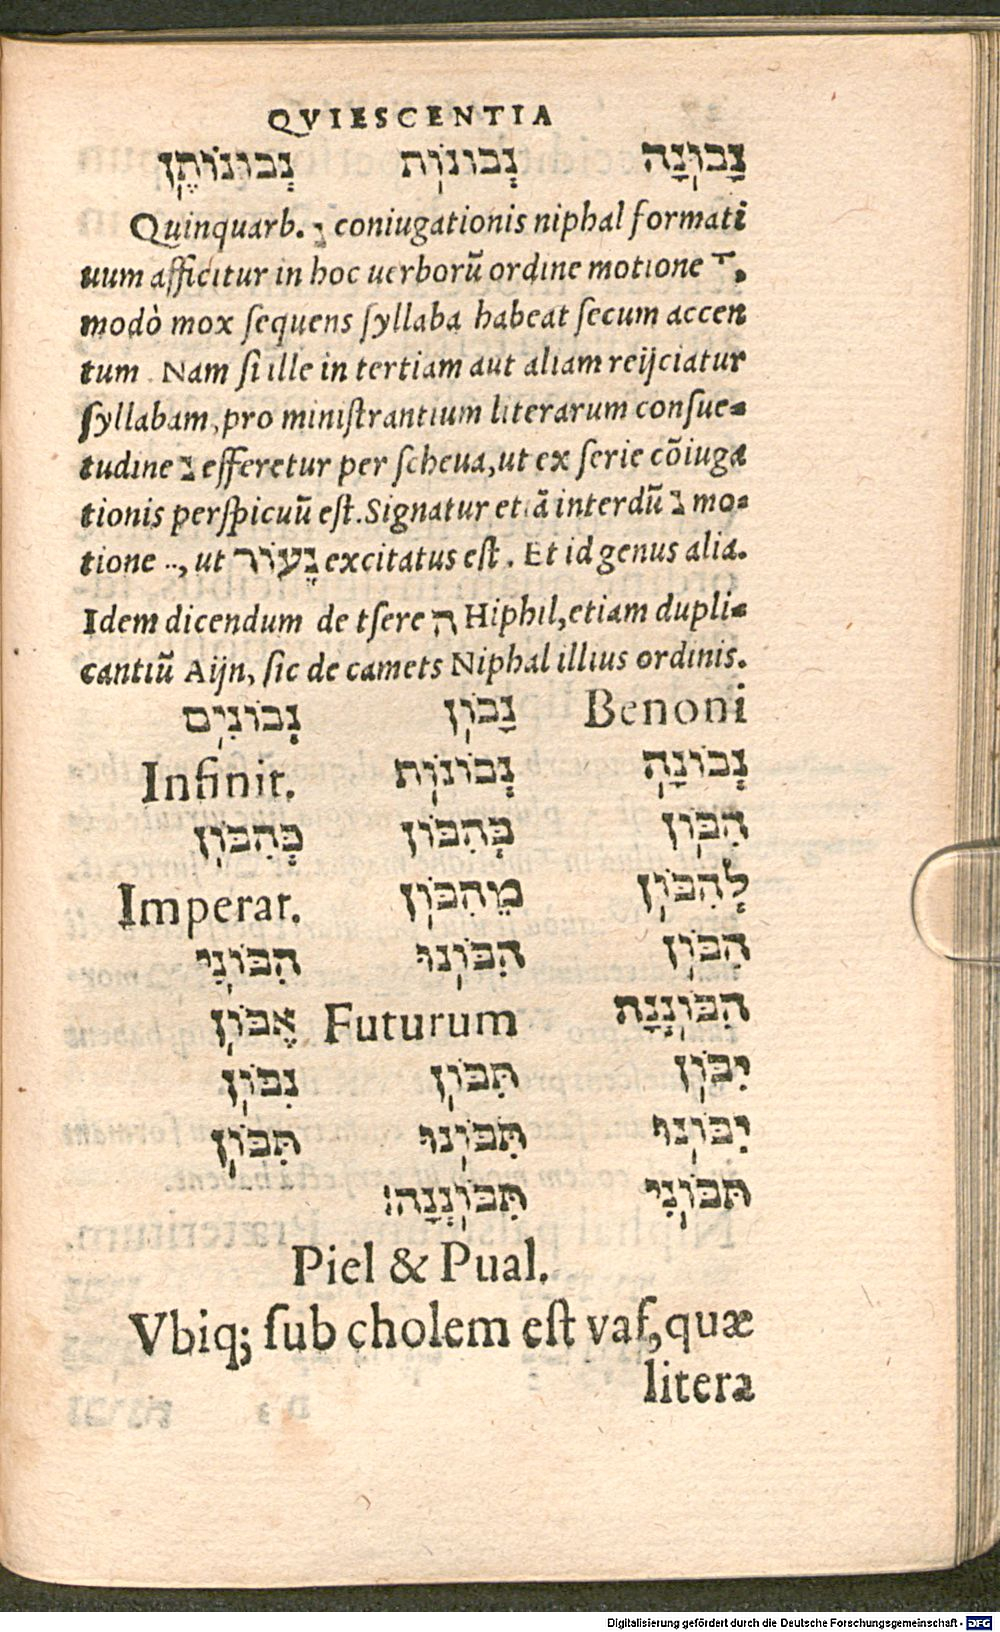 QVIESCENTIA
נָבוֹנָה נְבוֹנוֹת נְבוֹנוֹתֶן
Quinquarb. נ coniugationis niphal formati
uum afficitur in hoc uerborũ ordine motione ָ,
modò mox ſequens ſyllaba habeat ſecum accen
tum. Nam ſi ille in tertiam aut aliam reijciatur
ſyllabam, pro miniſtrantium literarum conſue-
tudine נ efferetur per ſcheua, ut ex ſerie cõiuga
tionis perſpicuũ eſt. Signatur etiã interdũ נ mo-
tione ֵ, ut נֵעוֹר excitatus eſt. Et id genus alia.
Idem dicendum de tſere ה Hiphil, etiam dupli-
cantiũ Aijn, ſic de camets Niphal illius ordinis.
Benoni נָבוֹן נְבוֹנִים
נְבוֹנָה נְבוֹנוֹת Infinit.
הִבּוֹן בְּהִבּוֹן כְּהִבּוֹן
לְהִבּוֹן מֵהִבּוֹן Imperat.
הִבּוֹן הִבּוֹנוּ הִבּוֹנִי
הִבּוֹנְנָה Futurum אֶבּוֹן
יִבּוֹן תִּבּוֹן נִבּוֹן
יִבּוֹנוּ תִּבּוֹנוּ תִּבּוֹן
תִּבּוֹנִי תִּבּוֹנְנָה:
Piel & Pual.
Vbiq; ſub cholem eſt vaſ, quæ
litera
Digitalisierung gefördert durch die Deutsche Forschungsgemeinschaft - DFG